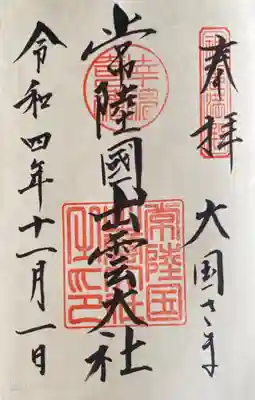 奉拝
大国さま
常陸國出雲大社
常陸国
令和四年十一月一日